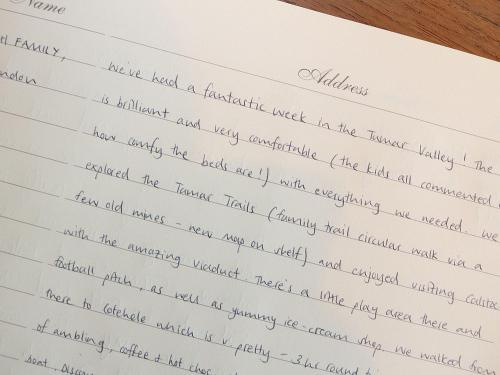 Name
Address
FAMILY, we've had a fantastic week in the Tamar Valley! The
is brilliant and very comfortable (the kids all commented
how comfy the beds are!) with everything we needed. We
explored the Tamar Trails (family trail circular walk via a
few old mines - new map on shelf) and enjoyed visiting Calstoc
with the amazing viaduct. There's a little play area there and
football pitch, as well as yummy ice-cream shop. We walked from
there to Cotehele which is v. pretty - 3hr round
of ambling, coffee & hot choc
boat.